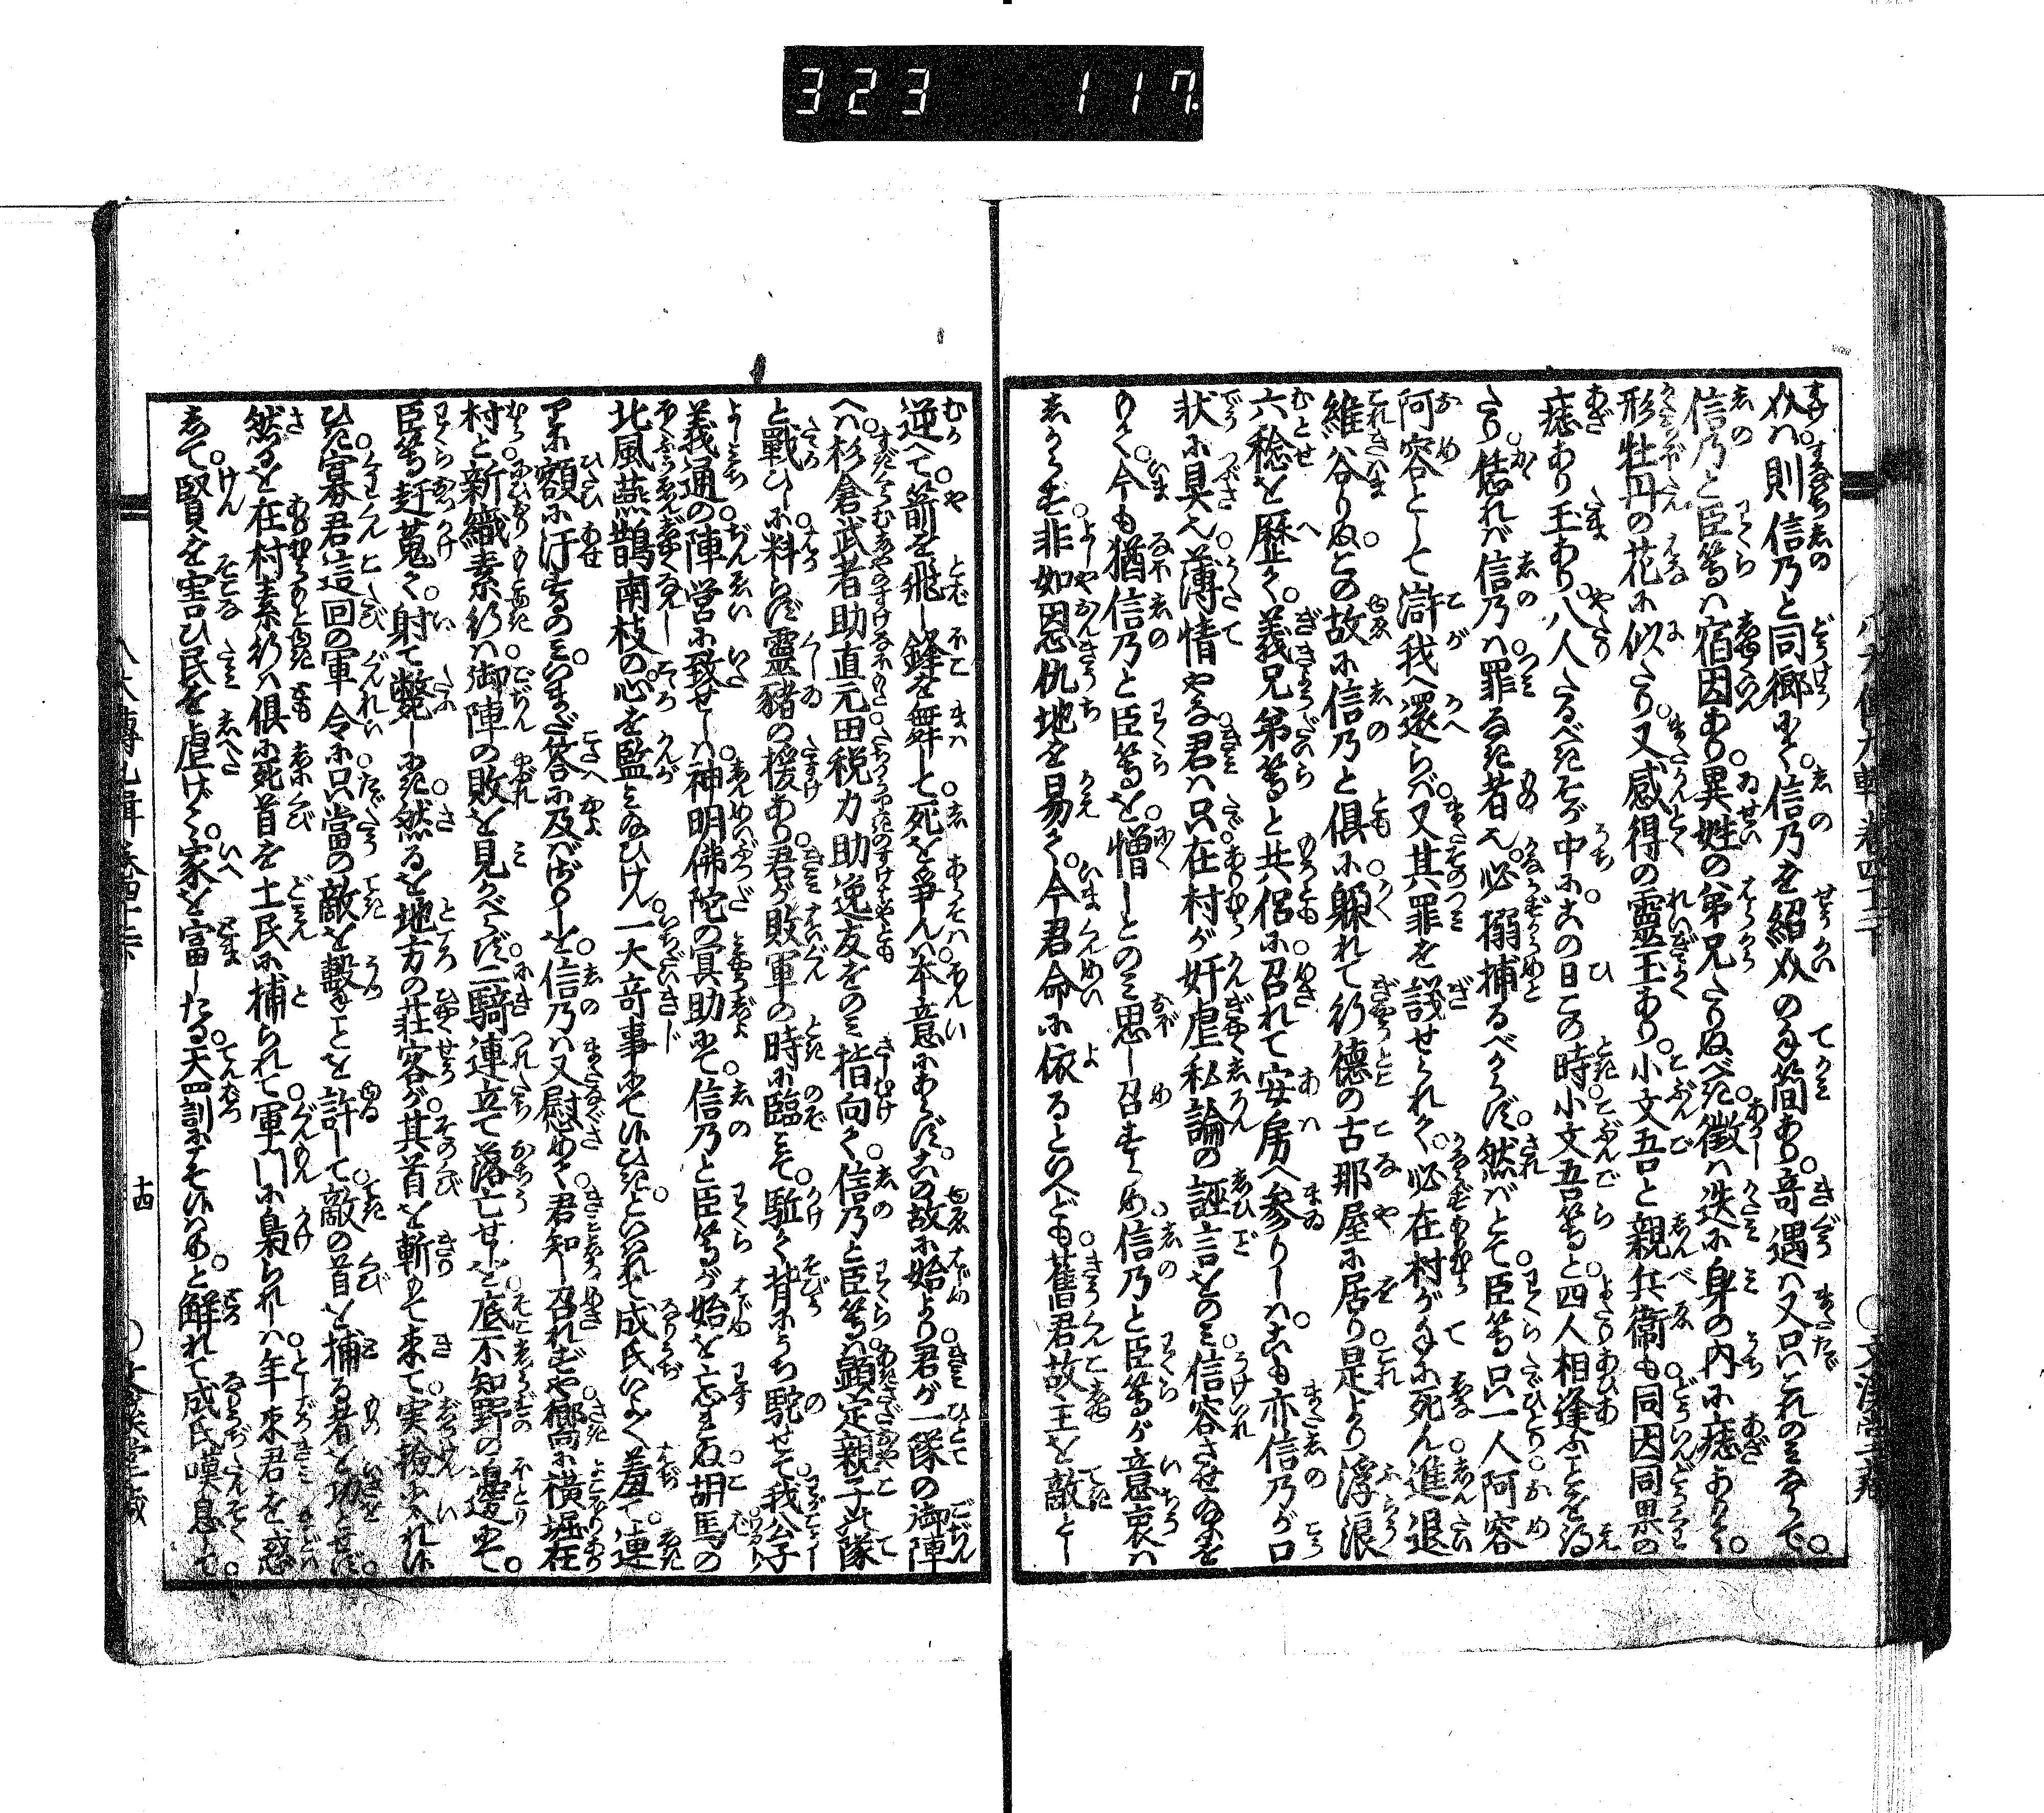 323 117
㚑ハ則信乃と同郷にて信乃を紹㚑の手簡あり竒遇ハ又只これのミならで
信乃と臣等ハ宿因あり異姓の弟兄たりぬべき徴ハ迭に身の内に痣ありその
形牡丹の花に似たり又感得の靈玉あり小文吾と親兵衛も同因同果の
痣あり玉あり八人たるべきその中にこの日この時小文吾等と四人相逢ふことを得
たり恁れバ信乃ハ罪なき者也必搦捕るべからず然バとて臣等只一人阿容
阿容として滸我へ還らバ又其罪を譴せられて必在村が手に死ん進退
維谷りぬこの故に信乃と倶に躱れて行德の古那屋に居り是より浮浪
六稔を歴て義兄弟等と共侶に召れて安房へ参りしハこも亦信乃が口
状に具也薄情やな君ハ只在村が奸虐私論の誣言をのミ信容させ給ふを
もて今も猶信乃と臣等を憎しとのミ思し召すらめ信乃と臣等が意衷ハ
しからず非如恩仇地を易て今君命に依るといへども舊君故主を敵とし
逆へて箭を飛し鋒を舞して死を爭んハ本意にあらずこの故に始より君が一隊の御陣
へハ杉倉武者助直元田税力助逸友をのミ指向て信乃と臣等ハ顕定親子の隊
と戰ひしに料らず靈猪の援あり君が敗軍の時に臨ミて駈て背にうち駝せて我公子
義通の陣営に致せしハ神明佛陀の冥助にて信乃と臣等が始を忘れぬ胡馬の
北風燕鵲南枝の心を監ミ給ひけん一大竒事にて候ひきといはれて成氏いよゝ羞て連
りに額に汗するのミいまだ答に及バざりしを信乃ハ又慰めて君知し召れずや曏に横堀在
村と新織素行ハ御陣の敗を見かへらず二騎連立て落亡せしを底不知野の邊にて
臣等赶蒐て射て斃しにき然るを地方の荘客が其首を斬もて來て実撿に入れ候
ひき寡君這回の軍令に只當の敵を擊ことを許して敵の首を捕る者を功とせず
然るを在村素行ハ倶に死首を土民に捕られて軍門に梟られしハ年來君を惑
して賢を害ひ民を虐げて家を富したる天罰にこそ候ハめと解れて成氏嘆息して
八犬傳九輯卷四十二下
十四
文溪堂藏